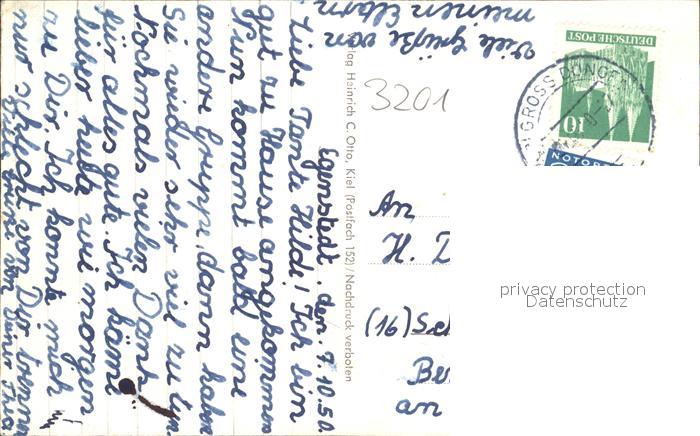 Egenstedt, den 7.10.50.
Liebe Tante Hilde! Ich bin
gut zu Hause angekommen
Nun kommt bald eine
andere Gruppe, dann haben
Sie wieder sehr viel zu tun.
Nochmals vielen Dank
für alles gute. Ich käme
lieber heute wie morgen
zu Dir. Ich konnte mich
nur schlecht von Dir trennen
Viele Grüße von Deiner
Viele Grüße von
meinen Eltern
Verlag Heinrich C. Otto, Kiel (Postfach 152) / Nachdruck verboten
3201
DEUTSCHE POST
10
GROSS DÜNGEN
NOTOP
An
H. D
(16) Sch
Be
an
privacy protection
Datenschutz